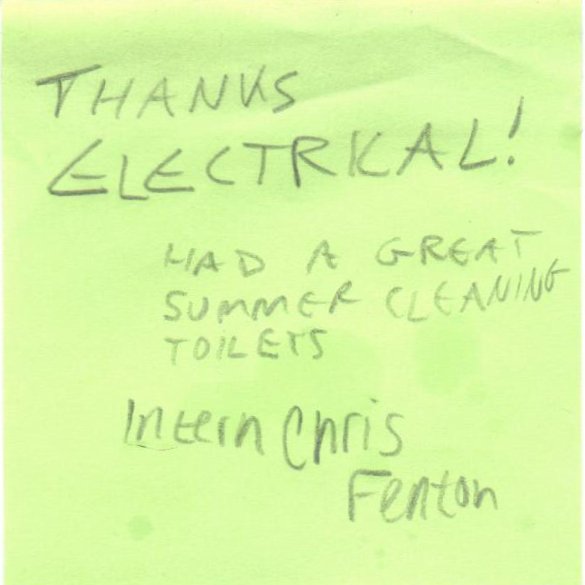 THANKS
ELECTRICAL!
HAD A GREAT
SUMMER CLEANING
TOILETS
Intern Chris
Fenton